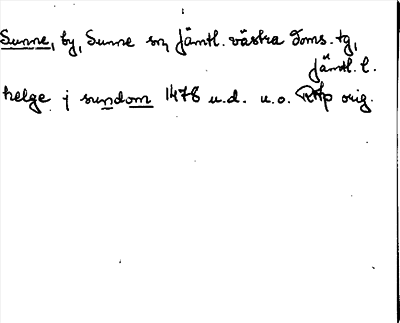 Sunne, by, Sunne sn, Jämtl. västra doms. tg,
Jämtl. l.
helge j sundom 1478 u.d. u.o. RAp orig.